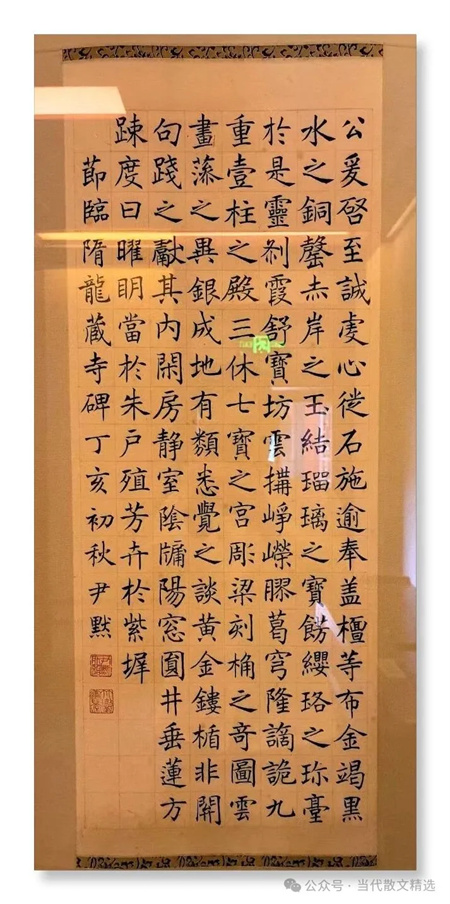 公爰啓至誠虔心徙石施逾奉盖檀等布金竭黑
水之銅罄赤岸之玉結瑠璃之寶餝纓珞之珎臺
於是靈刹霞舒寶坊雲構崢嶸膠葛穹隆譎詭九
重壹柱之殿三休七寶之宮彫梁刻桷之奇圖雲
畫藻之異銀成地有類悉覺之談黄金鏤楯非關
句踐之獻其内閑房静室陰牖陽窓圓井垂蓮方
踈度日曜眀當於朱户殖芳卉於紫墀
節臨隋龍藏寺碑丁亥初秋尹默
公众号·当代散文精选